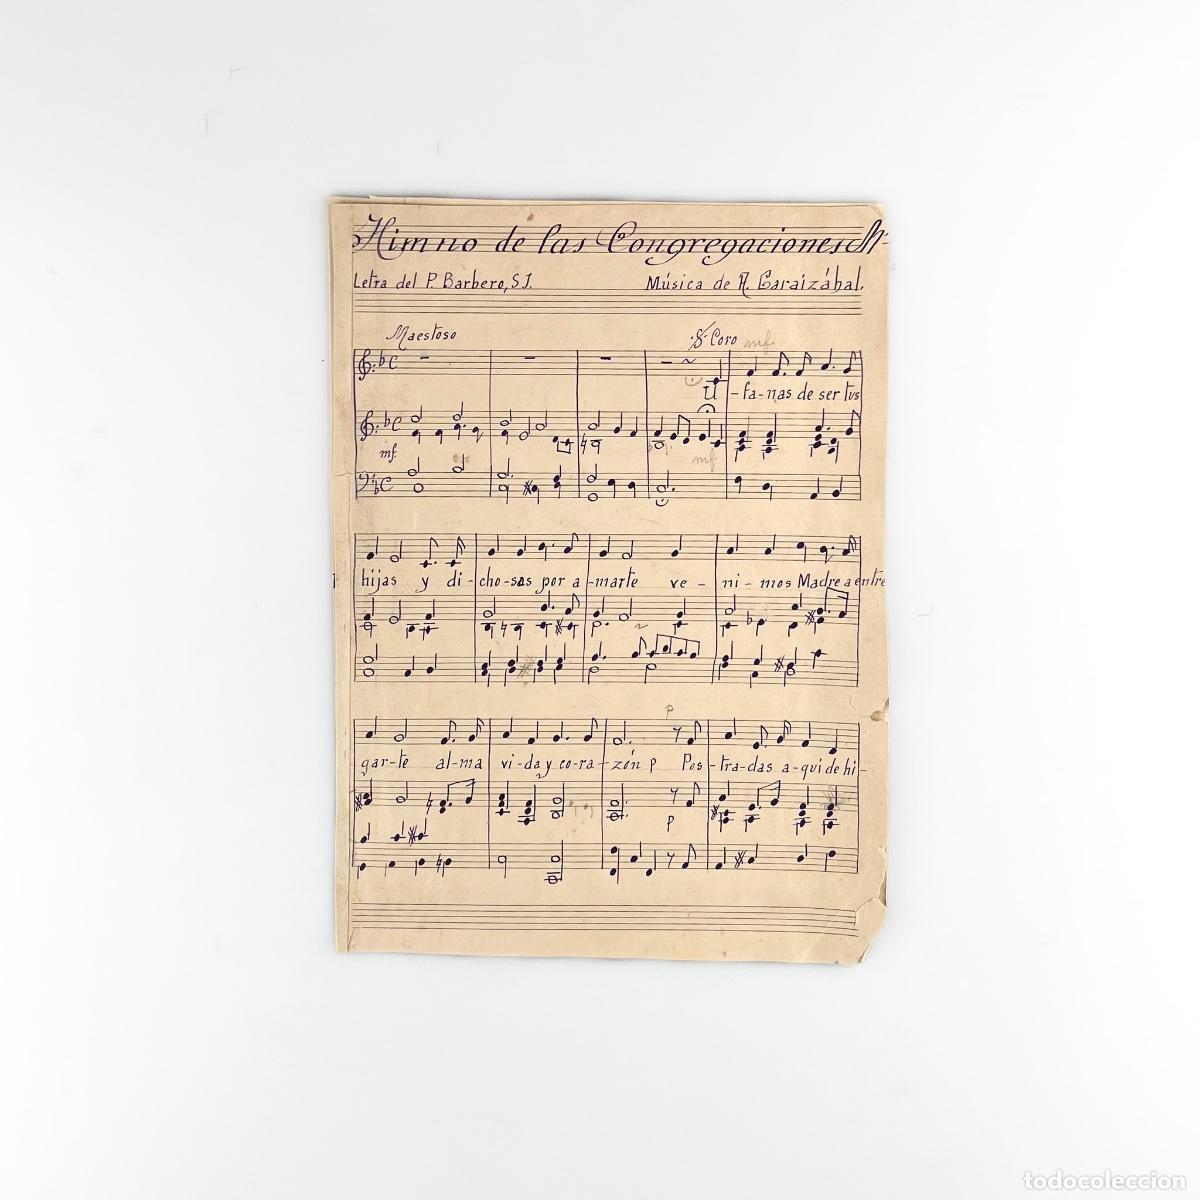 Himno de las Congregaciones M
Letra del P. Barbero, S.J.
Música de A. Garaizábal.
Maestoso
Coro mf
U-fa-nas de ser tus
mf.
mf
hijas y di-cho-sas por a-marte ve-ni-mos Madre a entre
p
gar-te al-ma vi-da y co-ra-zón p Pos-tra-das a-qui de hi-
p
todocoleccion